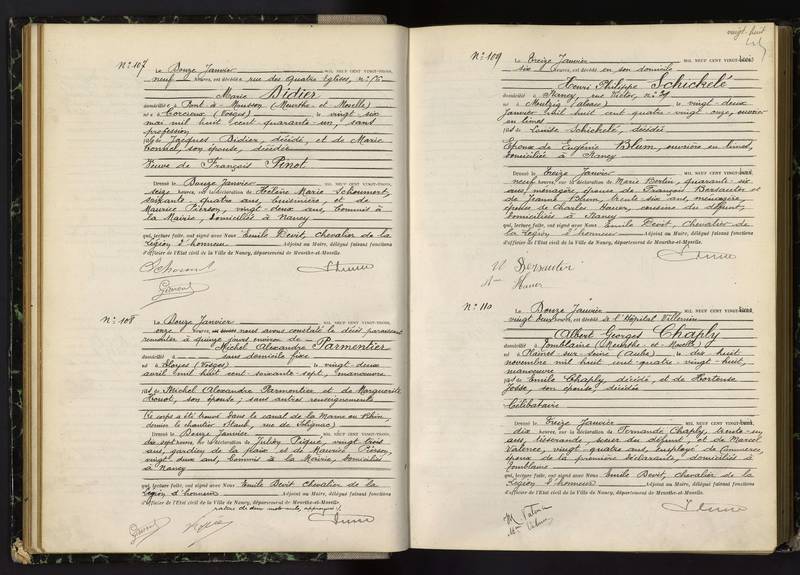 N° 107
Le Douze Janvier MIL NEUF CENT VINGT-TROIS,
neuf heures, est décédée rue des Quatre Eglises, n° 56
Marie Didier
domiciliée à Pont-à-Mousson (Meurthe-et-Moselle)
née à Corcieux (Vosges) le vingt-six
mai mil huit cent quarante-un, sans
profession
fille de Jacques Didier, décédé, et de Marie
son épouse, décédée
Veuve de François Pinot
Dressé le Douze Janvier MIL NEUF CENT VINGT-TROIS,
seize heures, sur la déclaration de Hélène Marie
soixante-quatre ans, cuisinière, et de
Maurice Pierson, vingt-deux ans, Commis à
la Mairie, domiciliés à Nancy
qui, lecture faite, ont signé avec Nous Emile Devit, chevalier de la
Légion d'honneur Adjoint au Maire, délégué faisant fonctions
d'officier de l'Etat civil de la Ville de Nancy, département de Meurthe-et-Moselle.
N° 108
Le Douze Janvier MIL NEUF CENT VINGT-TROIS,
onze heures nous avons constaté le décès paraissant
remonter à quinze jours environ de
Michel Alexandre Parmentier
domicilié à sans domicile fixe
né à Eloyes (Vosges) le vingt-deux
avril mil huit cent soixante-sept, manoeuvre
fils de Michel Alexandre Parmentier et de Marguerite
son épouse, sans autres renseignements
Ce corps a été trouvé dans le canal de la Marne au Rhin
derrière le chantier rue de Solignac)
Dressé le Douze Janvier MIL NEUF CENT VINGT-TROIS,
dix-sept heures, sur la déclaration de Julien vingt-trois
ans, gardien de la paix et de Maurice Pierson,
vingt-deux ans, Commis à la Mairie, domiciliés
à Nancy
qui, lecture faite, ont signé avec Nous Emile Devit, chevalier de la
Légion d'honneur Adjoint au Maire, délégué faisant fonctions
d'officier de l'Etat civil de la Ville de Nancy, département de Meurthe-et-Moselle.
rature de deux mots nuls, approuvé
vingt-huit
N° 109
Le Treize Janvier MIL NEUF CENT VINGT-
six heures, est décédé en son domicile
Henri Philippe Schickelé
domicilié à Nancy, rue Victor, n° 31
né à Mutzig (Alsace) le vingt-deux
Janvier mil huit cent quatre-vingt-onze, ouvrier
en limes
fils de Louise Schickelé, décédée
Epoux de Eugénie Blum, ouvrière en limes,
domiciliée à Nancy
Dressé le Treize Janvier MIL NEUF CENT VINGT-
neuf heures, sur la déclaration de Marie Bertin, quarante-six
ans, ménagère, épouse de François Bersauter et
de Jeanne Blum, trente-six ans, ménagère,
épouse de Charles Hauer, cousine du défunt,
domiciliées à Nancy
qui, lecture faite, ont signé avec Nous Emile Devit, chevalier de
la Légion d'honneur Adjoint au Maire, délégué faisant fonctions
d'officier de l'Etat civil de la Ville de Nancy, département de Meurthe-et-Moselle.
Bersauter
Hauer
N° 110
Le Douze Janvier MIL NEUF CENT VINGT-
vingt-deux heures, est décédé à l'Hôpital Villemin
Albert Georges Chaply
domicilié à Tomblaine (Meurthe-et-Moselle)
né à Plaines-sur-Seine (Aube) le dix-huit
novembre mil huit cent quatre-vingt-huit,
manoeuvre
fils de Emile Chaply, décédé, et de Hortense
Josse, son épouse, décédée
Célibataire
Dressé le Treize Janvier MIL NEUF CENT VINGT-
dix heures, sur la déclaration de Fernande Chaply, trente-un
ans, tisserande, soeur du défunt, et de Marcel
Valence, vingt-quatre ans, Employé de Commerce,
époux de la première déclarante, domiciliés à
Tomblaine
qui, lecture faite, ont signé avec Nous Emile Devit, chevalier de la
Légion d'honneur Adjoint au Maire, délégué faisant fonctions
d'officier de l'Etat civil de la Ville de Nancy, département de Meurthe-et-Moselle.